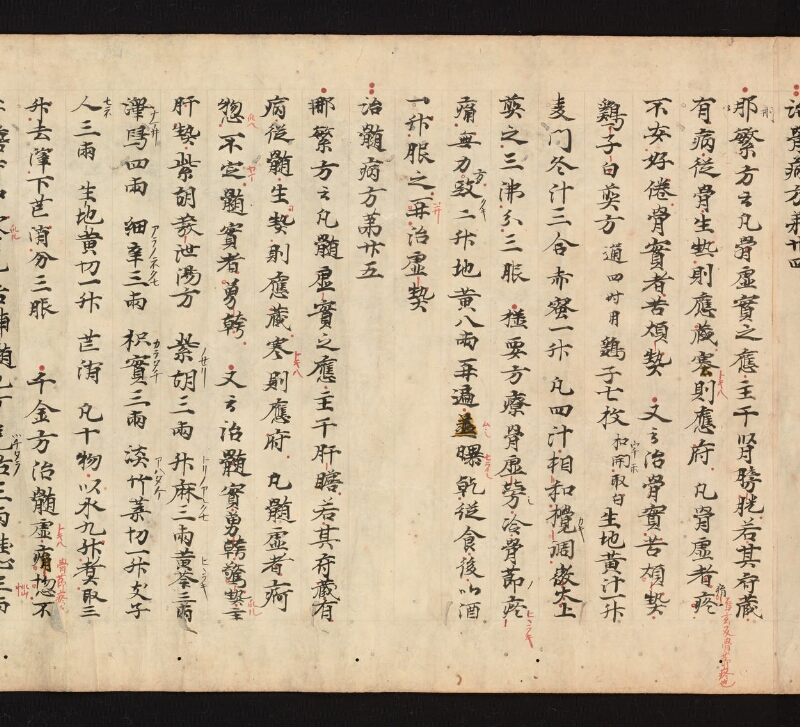 治骨病方第廿四
刪繁方云凡骨虛實之應主于腎膀胱若其府藏
有病從骨生熱則應藏寒則應府凡骨虛者疼
不安好倦骨實者苦煩熱又云治骨實苦煩熱
鷄子白煎方適四時用鷄子七枚扣開取白生地黃汁一升
麦門冬汁三合赤蜜一升凡四汁相和攪調微火上
煎之三沸分三服極要方療骨虛勞冷骨節疼
痛無力方豉二升地黃八兩再遍蒸曝乾從食後以酒
一升服之再治虛熱
治髓病方第廿五
刪繁方云凡髓虛實之應主于肝膽若其府藏有
病從髓生熱則應藏寒則應府凡髓虛者病
惚不定髓實者勇幹又云治髓實勇幹驚熱主
肝熱柴胡發泄湯方柴胡三兩升麻三兩黃芩三兩
澤瀉四兩細辛三兩枳實三兩淡竹葉切一升支子
人三兩生地黃切一升芒消凡十物以水九升煮取三
升去滓下芒消分三服千金方治髓虛痛惚不